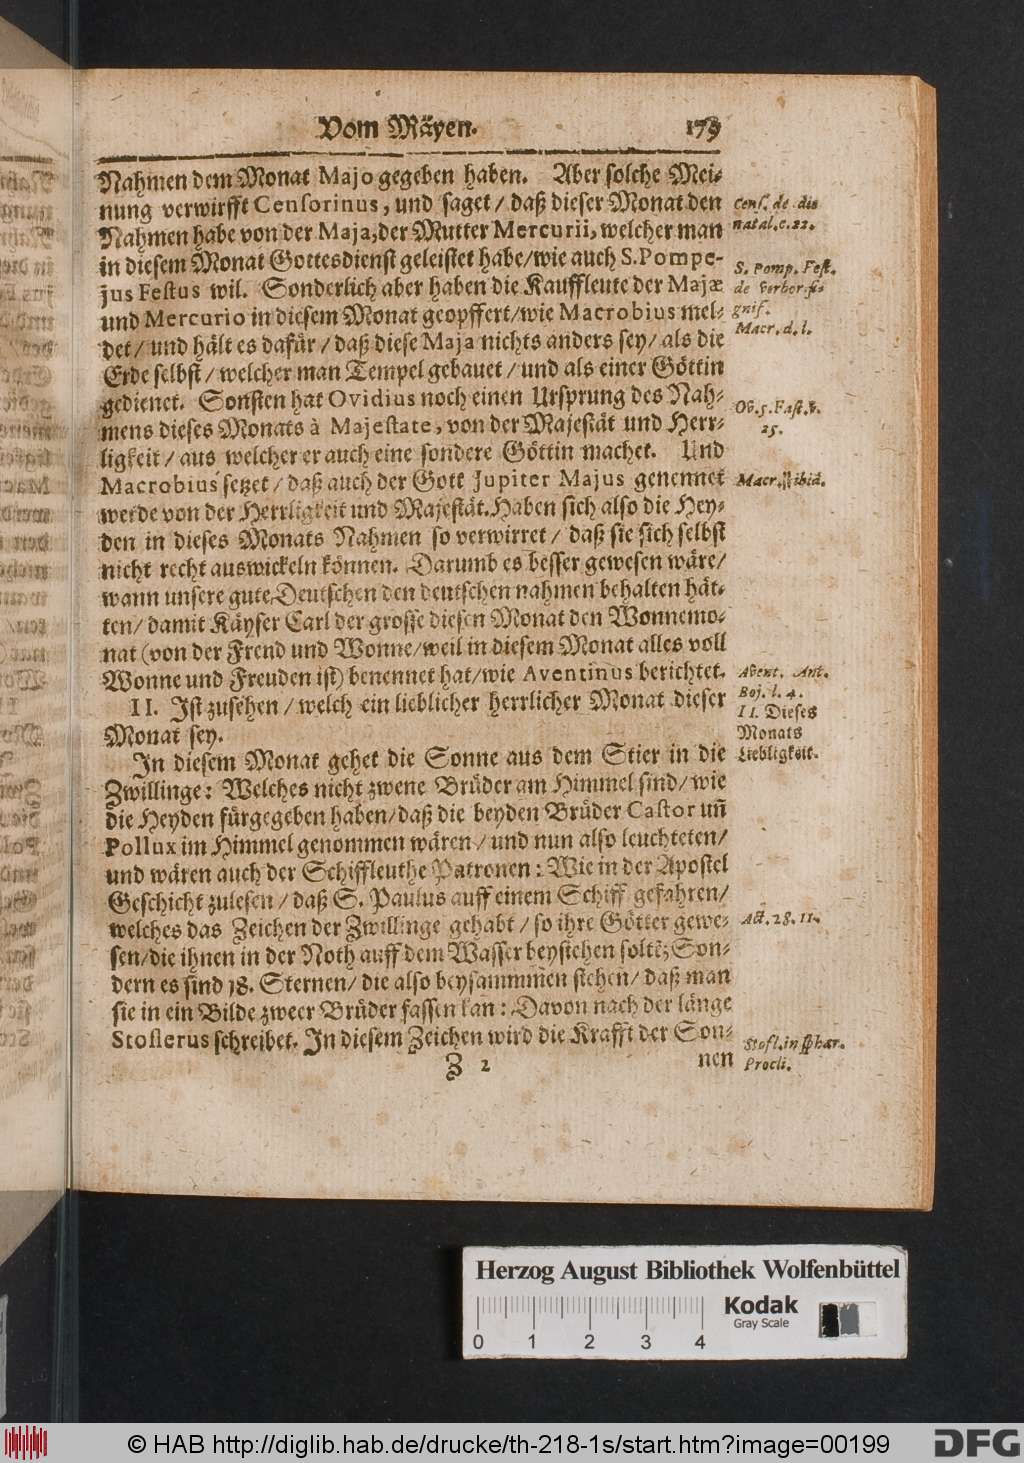 Vom Mäyen. 179
Nahmen dem Monat Majo gegeben haben. Aber solche Mei-
nung verwirfft Censorinus, und saget / daß dieser Monat den
Nahmen habe von der Maja, der Mutter Mercurii, welcher man
in diesem Monat Gottesdienst geleistet habe / wie auch S. Pompe-
jus Festus wil. Sonderlich aber haben die Kauffleute der Majæ
und Mercurio in diesem Monat geopffert / wie Macrobius mel-
det / und hält es dafür / daß diese Maja nichts anders sey / als die
Erde selbst / welcher man Tempel gebauet / und als einer Göttin
gedienet. Sonsten hat Ovidius noch einen Ursprung des Nah-
mens dieses Monats à Majestate, von der Majestät und Herr-
ligkeit / aus welcher er auch eine sondere Göttin machet. Und
Macrobius setzet / daß auch der Gott Jupiter Majus genennet
werde von der Herrligkeit und Majestät. Haben sich also die Hey-
den in dieses Monats Nahmen so verwirret / daß sie sich selbst
nicht recht auswickeln können. Darumb es besser gewesen wäre /
wann unsere gute Deutschen den deutschen nahmen behalten hät-
ten / damit Käyser Carl der grosse diesen Monat den Wonnemo-
nat (von der Frend und Wonne / weil in diesem Monat alles voll
Wonne und Freuden ist) benennet hat / wie Aventinus berichtet.
II. Ist zusehen / welch ein lieblicher herrlicher Monat dieser
Monat sey.
In diesem Monat gehet die Sonne aus dem Stier in die
Zwillinge: Welches nicht zwene Brüder am Himmel sind / wie
die Heyden fürgegeben haben / daß die beyden Brüder Castor uñ
Pollux im Himmel genommen wären / und nun also leuchteten /
und wären auch der Schiffleuthe Patronen: Wie in der Apostel
Geschicht zulesen / daß S. Paulus auff einem Schiff gefahren /
welches das Zeichen der Zwillinge gehabt / so ihre Götter gewe-
sen / die ihnen in der Noth auff dem Wasser beystehen soltẽ; Son-
dern es sind 18. Sternen / die also beysammmen stehen / daß man
sie in ein Bilde zweer Brüder fassen kan: Davon nach der länge
Stoflerus schreibet. In diesem Zeichen wird die Krafft der Son-
Z 2 nen
Cens. de die
natal. c. 22.
S. Pomp. Fest.
de verbor. si-
gnif.
Macr. d. l.
Ov. 5. Fast. v.
25.
Macr. ibid.
Avent. Ant.
Boj. l. 4.
II. Dieses
Monats
Liebligkeit.
Act. 28. 11.
Stofl. in sphær.
Procli.
Herzog August Bibliothek Wolfenbüttel
0 1 2 3 4
Kodak
Gray Scale
© HAB http://diglib.hab.de/drucke/th-218-1s/start.htm?image=00199
DFG